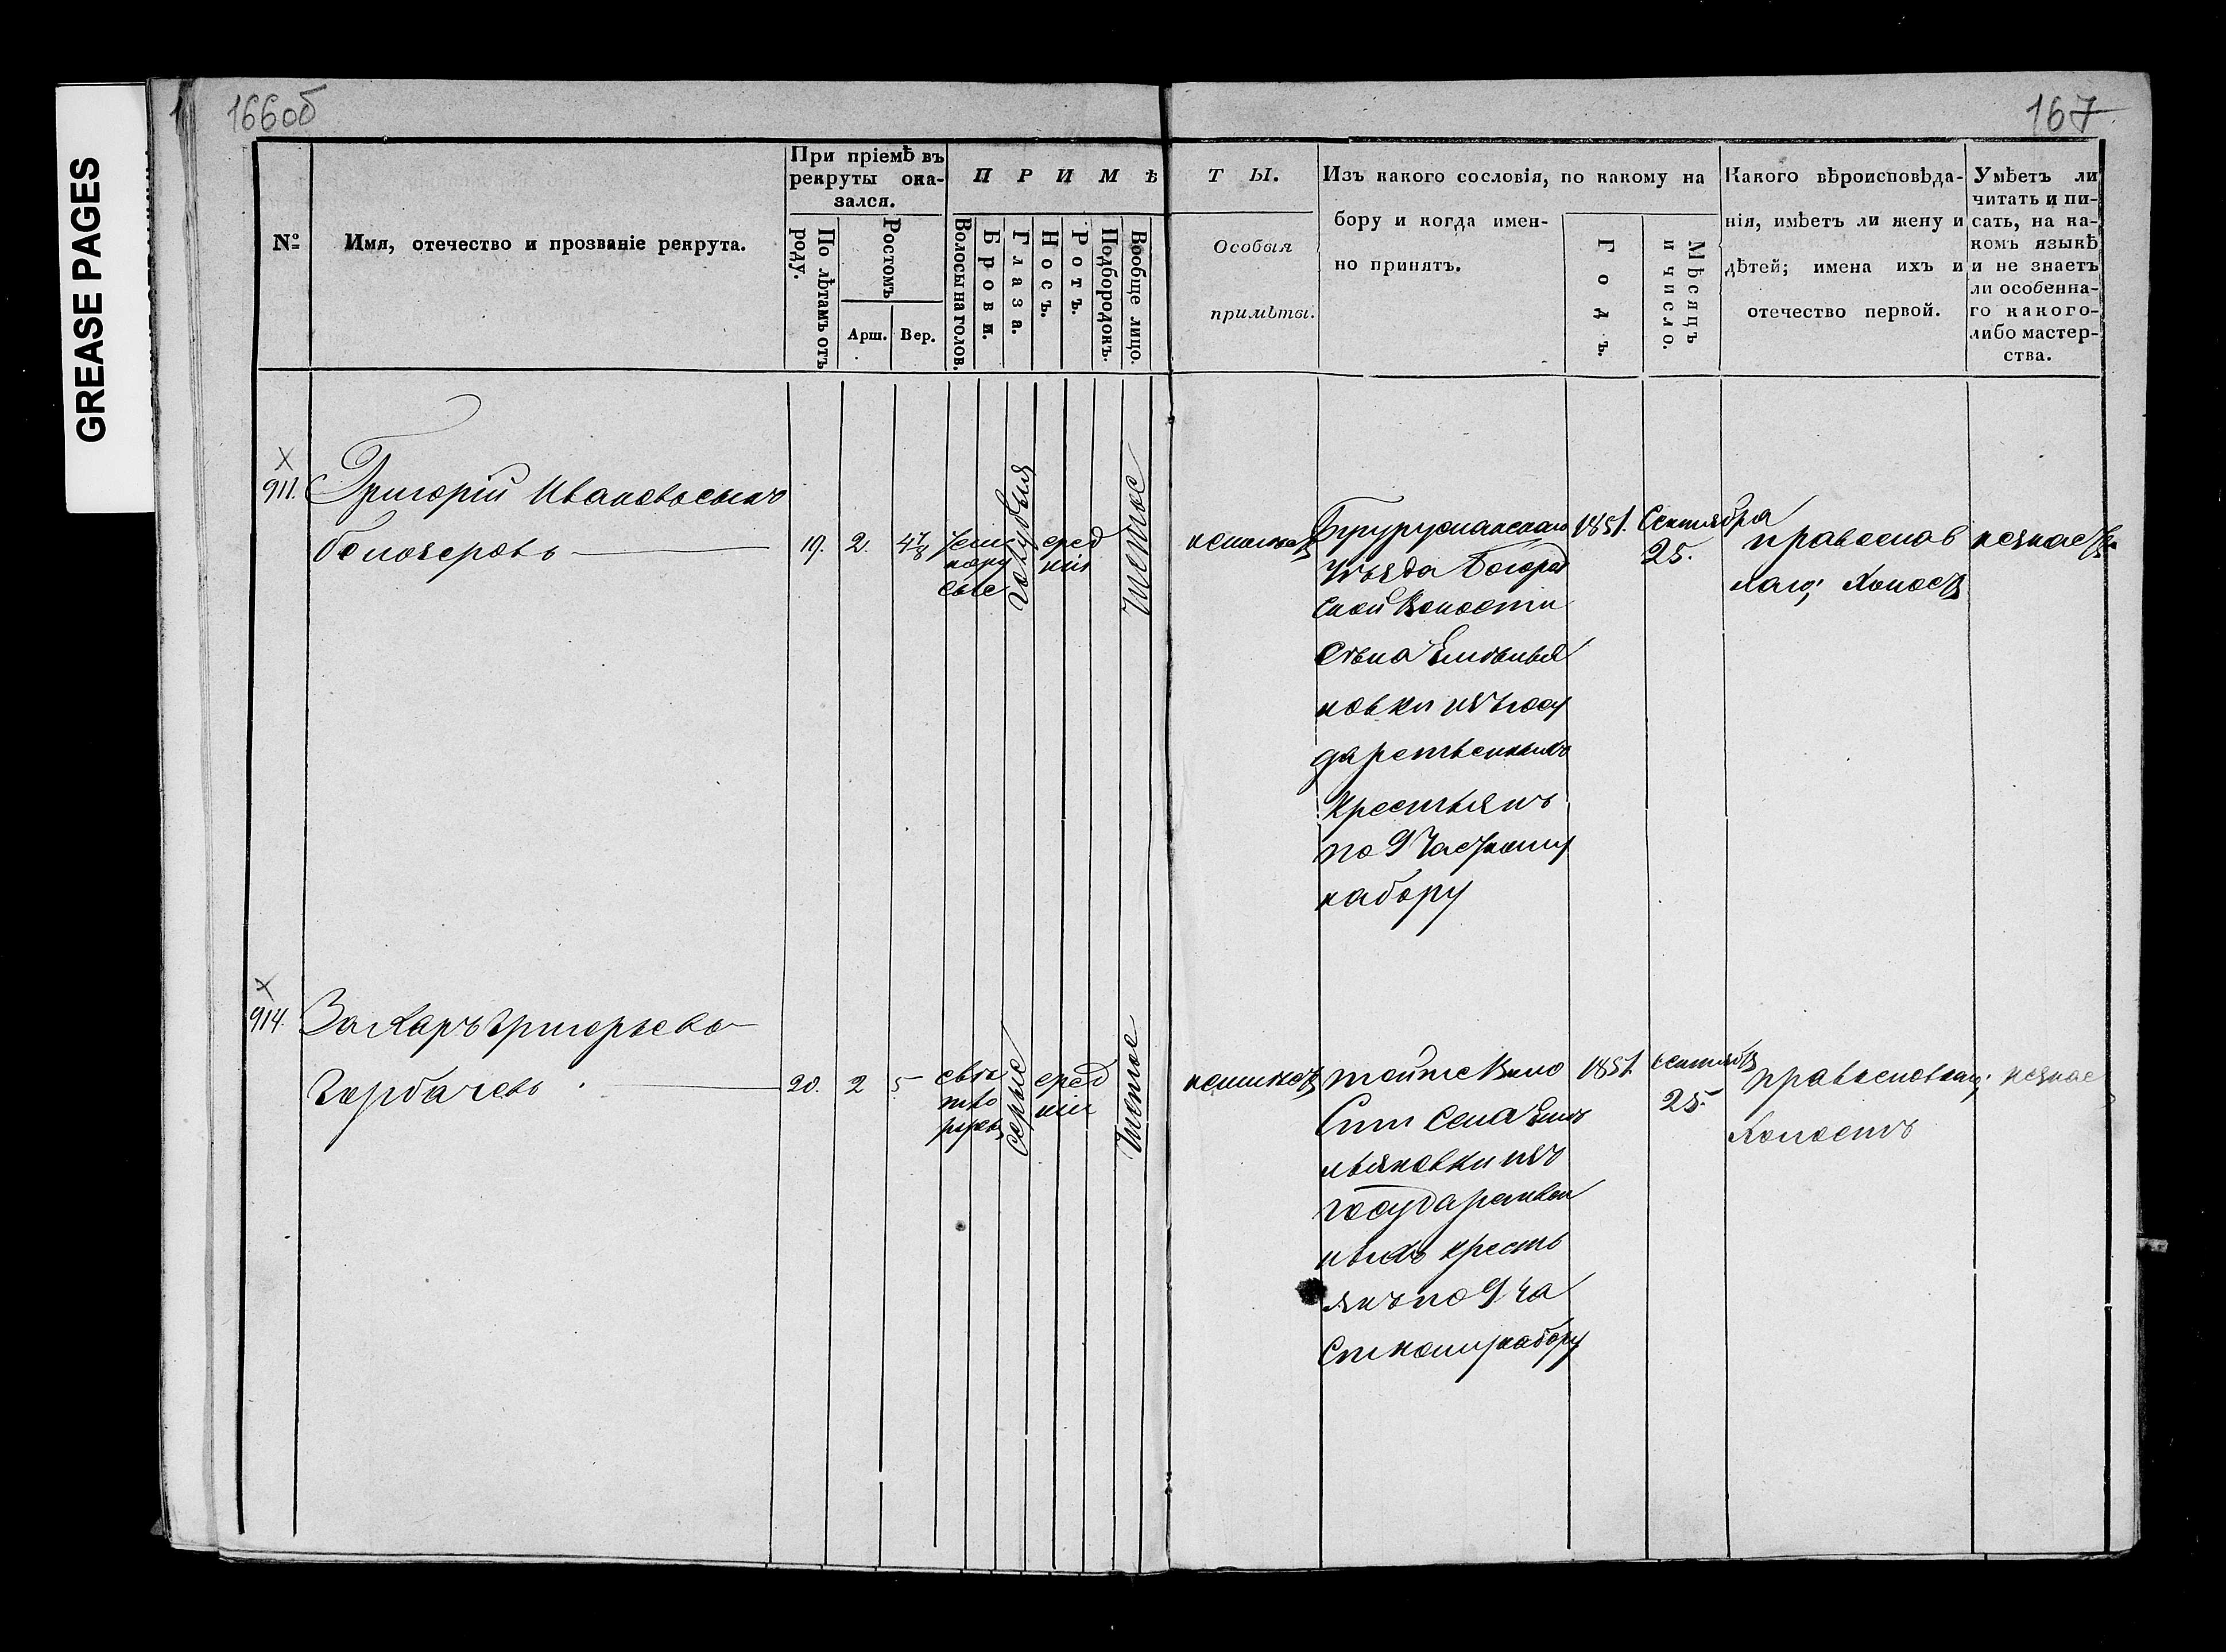 GREASE PAGES
166об
167
№
Имя, отечество и прозваніе рекрута.
При пріемѣ въ
рекруты ока-
зался.
По лѣтамъ отъ
роду.
Ростомъ
Арш.
Вер.
ПРИМѢ
Волосы на голов.
Брови.
Глаза.
Носъ.
Ротъ.
Подбородокъ.
Вообще лицо.
ТЫ.
Особыя
примѣты.
Изъ какого сословія, по какому на
бору и когда имен-
но принятъ.
Годъ.
Мѣсяцъ
и число.
Какого вѣроисповѣда-
нія, имѣетъ ли жену и
дѣтей; имена ихъ и
отечество первой.
Умѣетъ ли
читать и пи-
сать, на ка-
комъ языкѣ
и не знаетъ
ли особенна-
го какого-
либо мастер-
ства.
х
911.
Григорій Ивановъ сынъ
Белозеровъ
19.
2.
4 7/8
темно
русые
голубыя
сред
ній
чистое
неимеетъ
Бугурусланскаго
Уѣзда Богород
ской Волости
Села Емѣлья
новки изъ госу
дарственныхъ
Крестьянъ
по 9 Частному
набору
1851.
Сентября
25.
православ
наго; Холостъ
незнаетъ
х
914.
Захаръ Григорьевъ
Горбачевъ
20.
2
5
свѣт
ло
русые
серые
сред
ній
чистое
неимеетъ
тойже Воло
сти Села Емѣ
льяновки изъ
государствен
ныхъ кресть
янъ по 9 ча
стному набору
1851.
сентября
25.
православнаго;
Холостъ
незнае